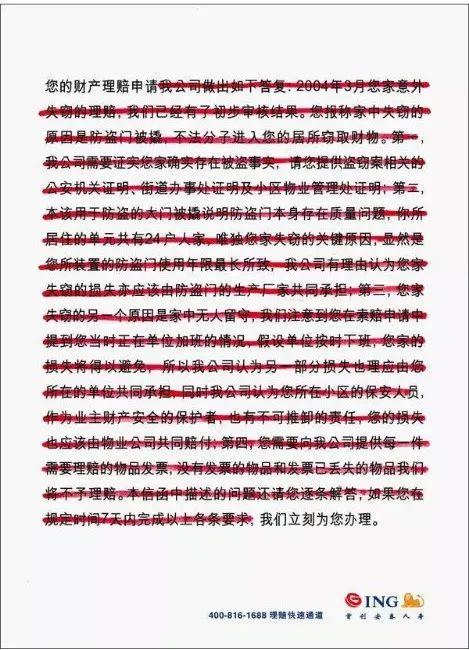 您的财产理赔申请我公司做出如下答复：2004年3月您家意外
失窃的理赔，我们已经有了初步审核结果。您报称家中失窃的
原因是防盗门被撬，不法分子进入您的居所窃取财物。第一，
我公司需要证实您家确实存在被盗事实，请您提供盗窃案相关的
公安机关证明、街道办事处证明及小区物业管理处证明；第二，
本该用于防盗的大门被撬说明防盗门本身存在质量问题，你所
居住的单元共有24户人家，唯独您家失窃的关键原因，显然是
您所装置的防盗门使用年限最长所致，我公司有理由认为您家
失窃的损失亦应该由防盗门的生产厂家共同承担；第三，您家
失窃的另一个原因是家中无人留守，我们注意到您在索赔申请中
提到您当时正在单位加班的情况，假设单位按时下班，您家的
损失将得以避免，所以我公司认为另一部分损失也理应由您
所在的单位共同承担，同时我公司认为您所在小区的保安人员，
作为业主财产安全的保护者，也有不可推卸的责任，您的损失
也应该由物业公司共同赔付；第四，您需要向我公司提供每一件
需要理赔的物品发票，没有发票的物品和发票已丢失的物品我们
将不予理赔。本信函中描述的问题还请您逐条解答，如果您在
规定时间7天内完成以上各条要求，我们立刻为您办理。
ING
400-816-1688 理赔快速通道
首创安泰人寿